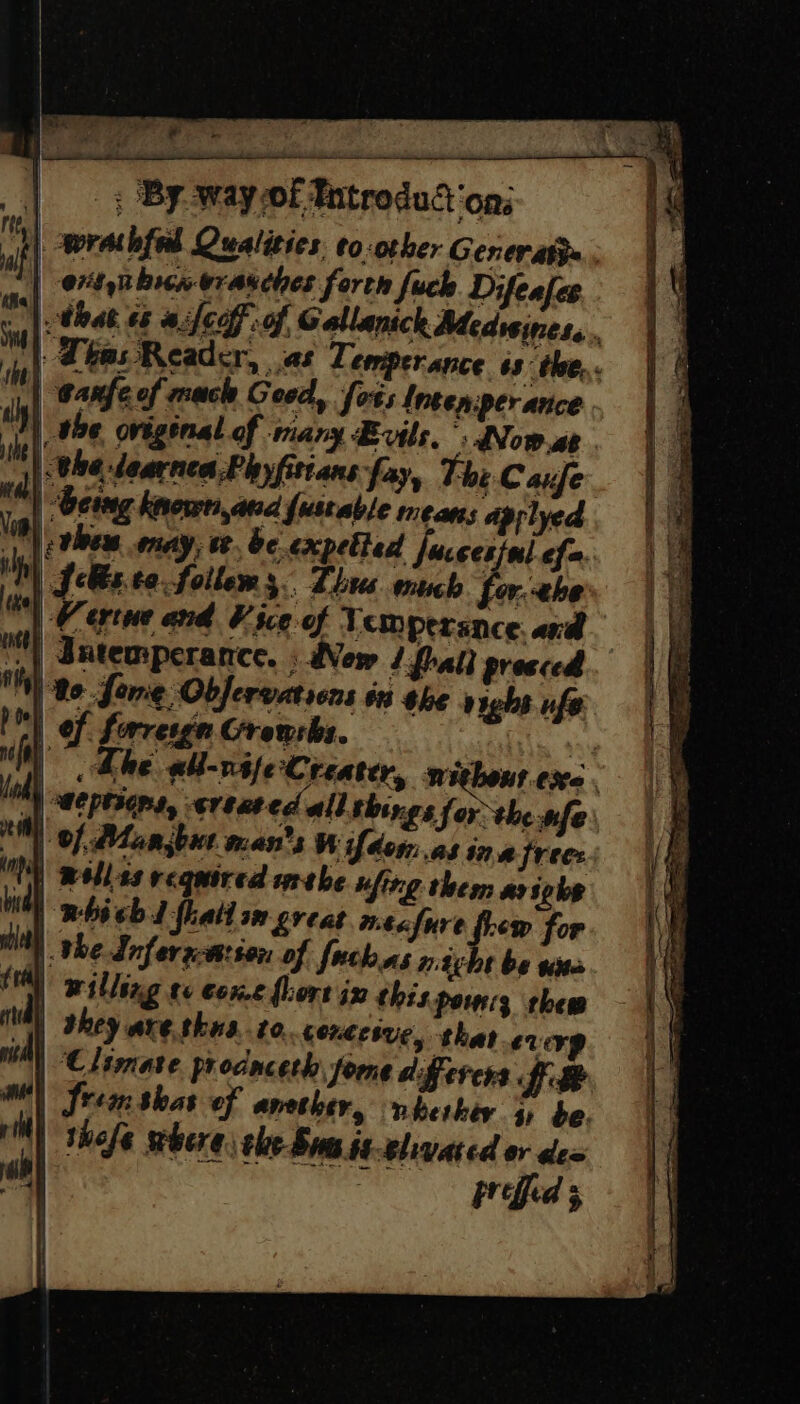 By way of Introduction;
wrathful Qualities to other Generati-
ons, which branches forth such Diseases
that is a scoff of Gallanick Medicines.
Thus Reader, as Temperance is the
Cause of much Good, so is Intemperance
the original of many Evils. Now as
the learned Physitians say, The Cause
being known, and suitable means applyed
then may, be expected succesful ef-
fects to follow; Thus much for the
Vertue and Vice of Temperance and
Intemperance. Now I shall proceed
to some Observations in the right use
of forreign Growths.
The all-wise Creater, without exce-
ptions, created all things for the use
of Man; but man's Wisdom as in a free
will is required in the using them aright
which I shall in great measure shew for
the Information of such as might be
willing to come short in this point; them
they are thus to conceive, that every
Climate produceth some different
from that of another, whether it be
those where the Sun is elivated or de-
pressed;